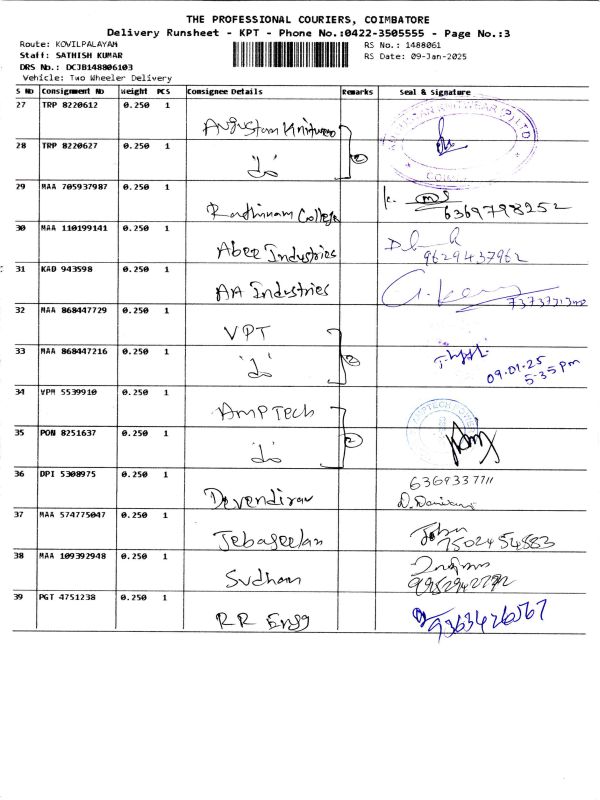 THE PROFESSIONAL COURIERS, COIMBATORE
Delivery Runsheet - KPT - Phone No.:0422-3505555 - Page No.:3
Route: KOVILPALAYAM RS No.: 1488061
Staff: SATHISH KUMAR RS Date: 09-Jan-2025
DRS No.: DCJB148806103
Vehicle: Two Wheeler Delivery
S No Consignment No Weight PCS Consignee Details Remarks Seal & signature
27 TRP 8220612 0.250 1 Angustam Knitwear
28 TRP 8220627 0.250 1 do 2
COIM
29 MAA 705937987 0.250 1 Rathinam College 6369798252
30 MAA 110199141 0.250 1 Abee Industries 9629437962
31 KAD 943598 0.250 1 AA Industries
32 MAA 868447729 0.250 1 VPT
33 MAA 868447216 0.250 1 do 2 09.01.25
5-35 pm
34 VPM 5539910 0.250 1 AMPTech
35 PON 8251637 0.250 1 do 2
36 DPI 5308975 0.250 1 Devendiran 6369337711
37 MAA 574775047 0.250 1 Jebaseelan John
7502454583
38 MAA 109392948 0.250 1 Sudhan
9952942772
39 PGT 4751238 0.250 1 RR Engg 9363426567